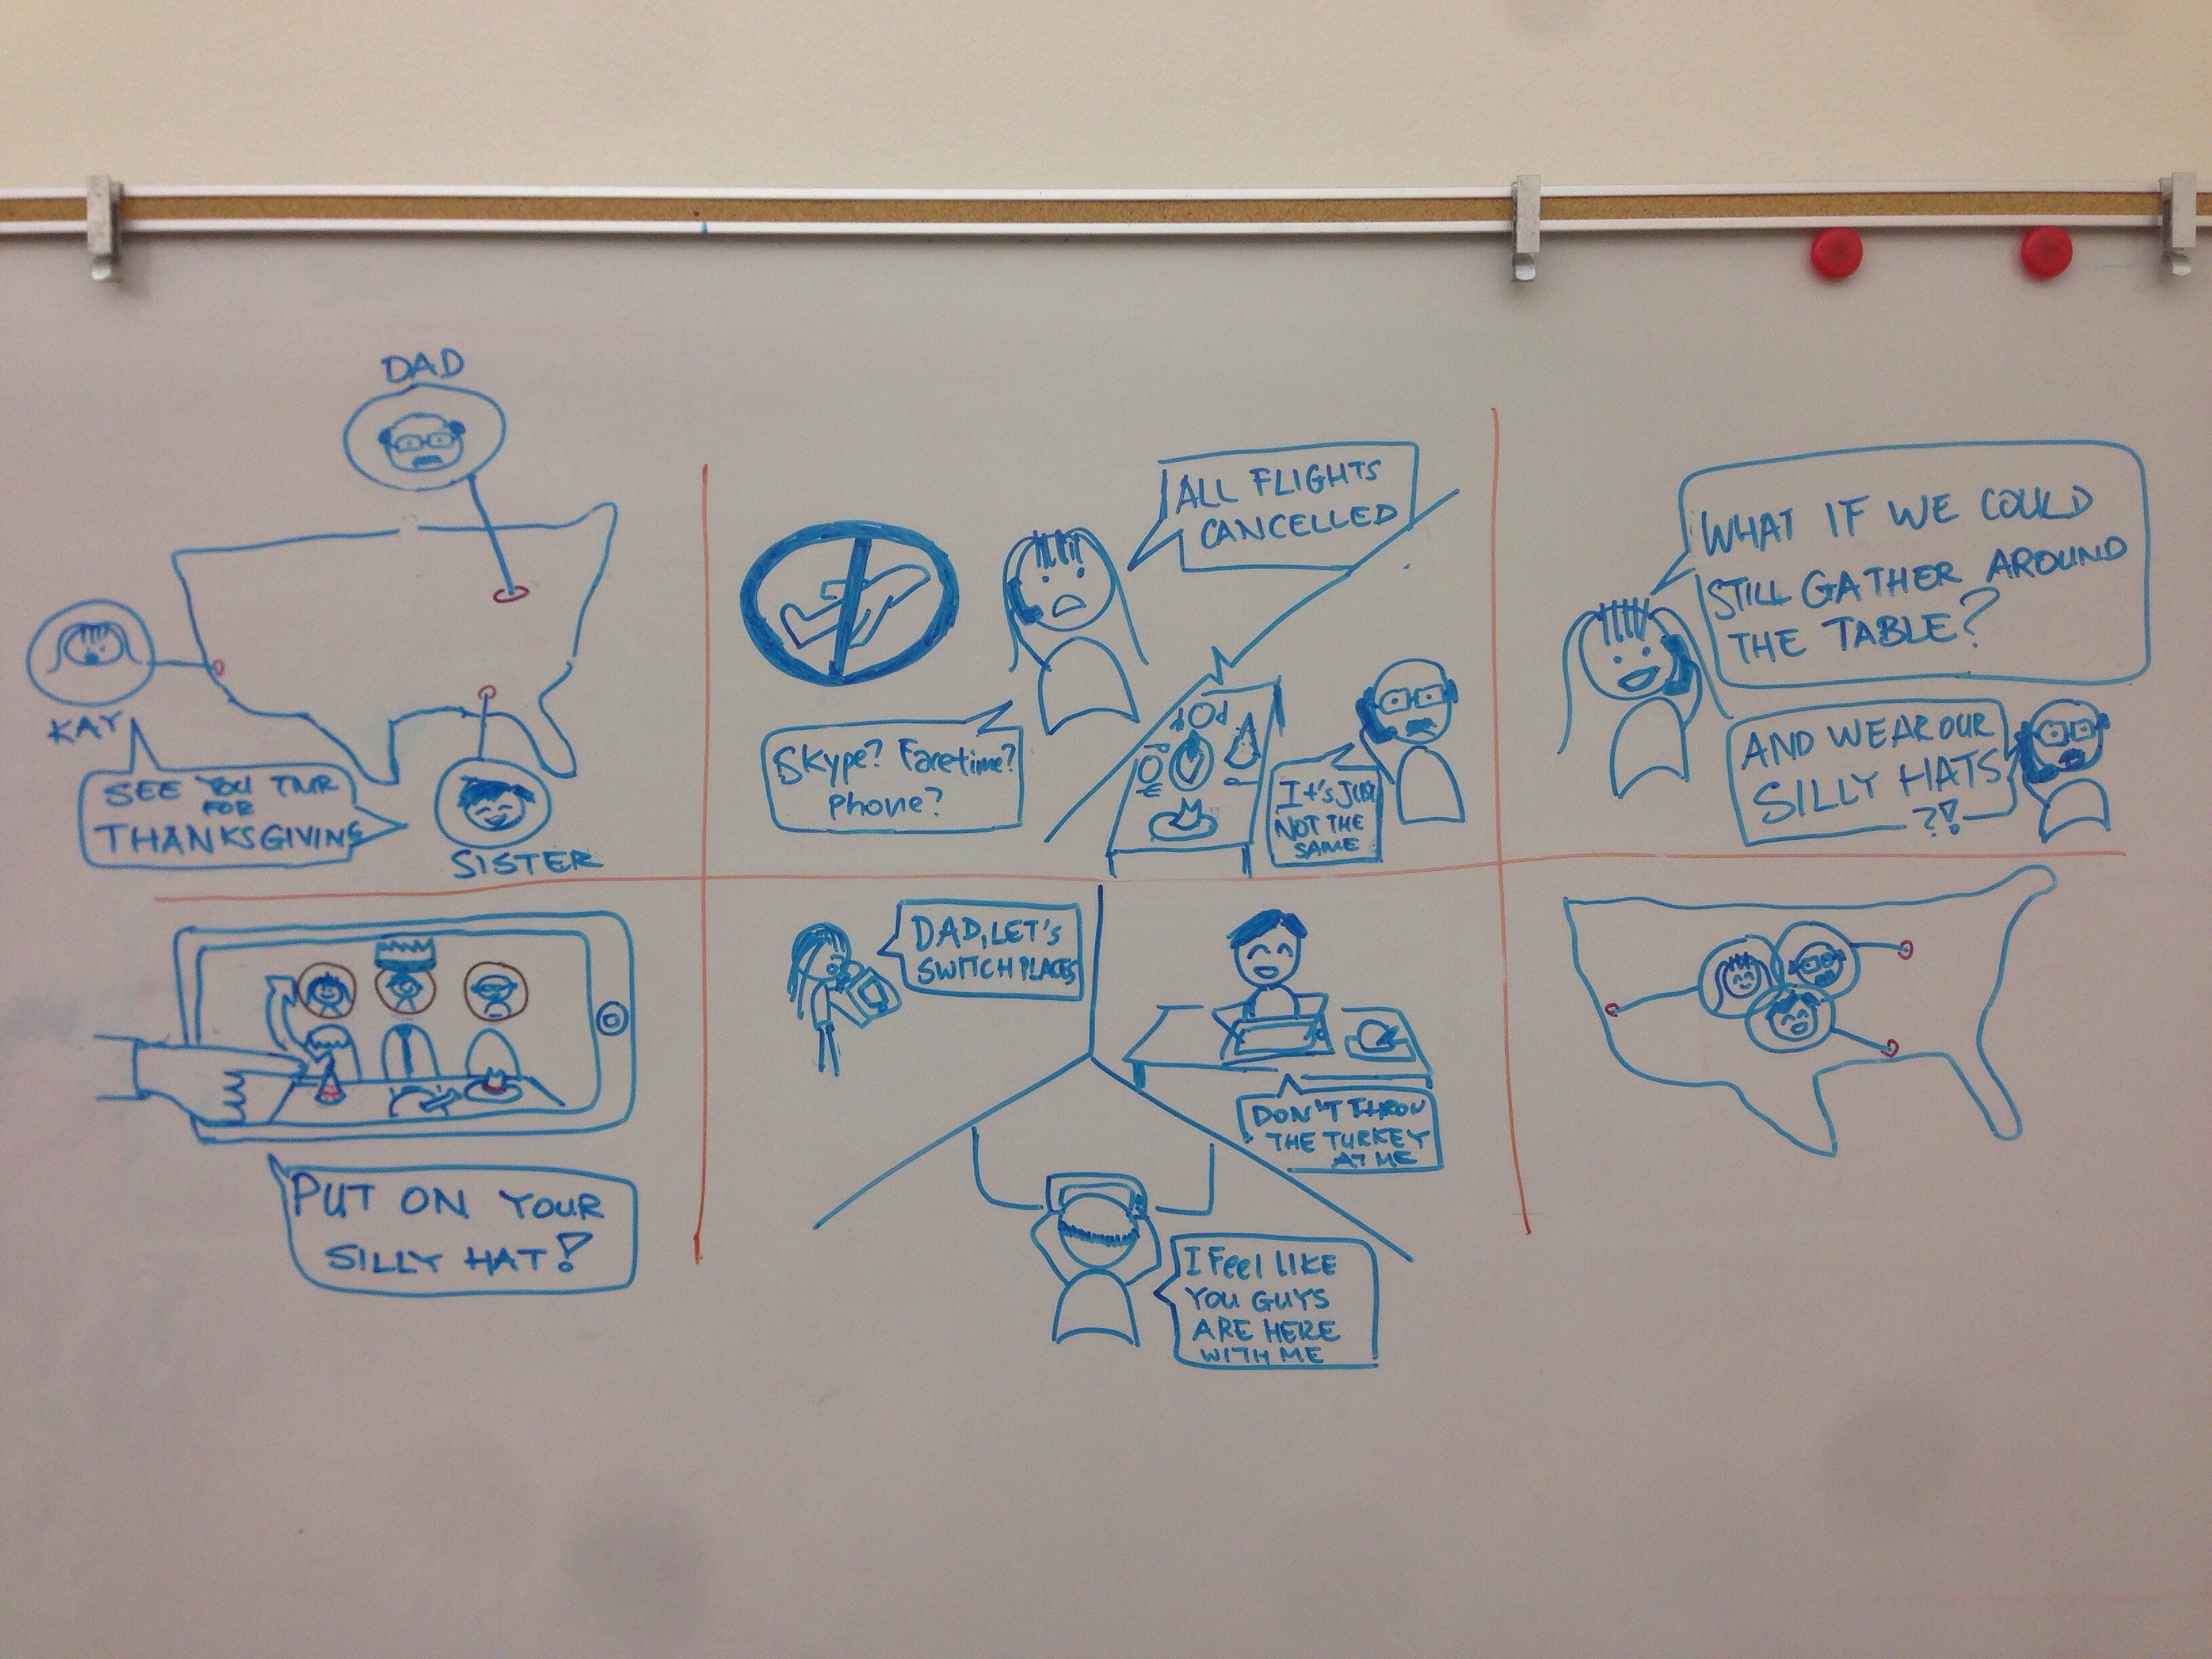 DAD
KAY
SEE YOU TMR
FOR
THANKSGIVING
SISTER
ALL FLIGHTS
CANCELLED
Skype? Facetime?
Phone?
It's JUST
NOT THE
SAME
WHAT IF WE COULD
STILL GATHER AROUND
THE TABLE?
AND WEAR OUR
SILLY HATS
?!
PUT ON YOUR
SILLY HAT!
DAD, LET'S
SWITCH PLACES
DON'T THROW
THE TURKEY
AT ME
I Feel LIKE
YOU GUYS
ARE HERE
WITH ME